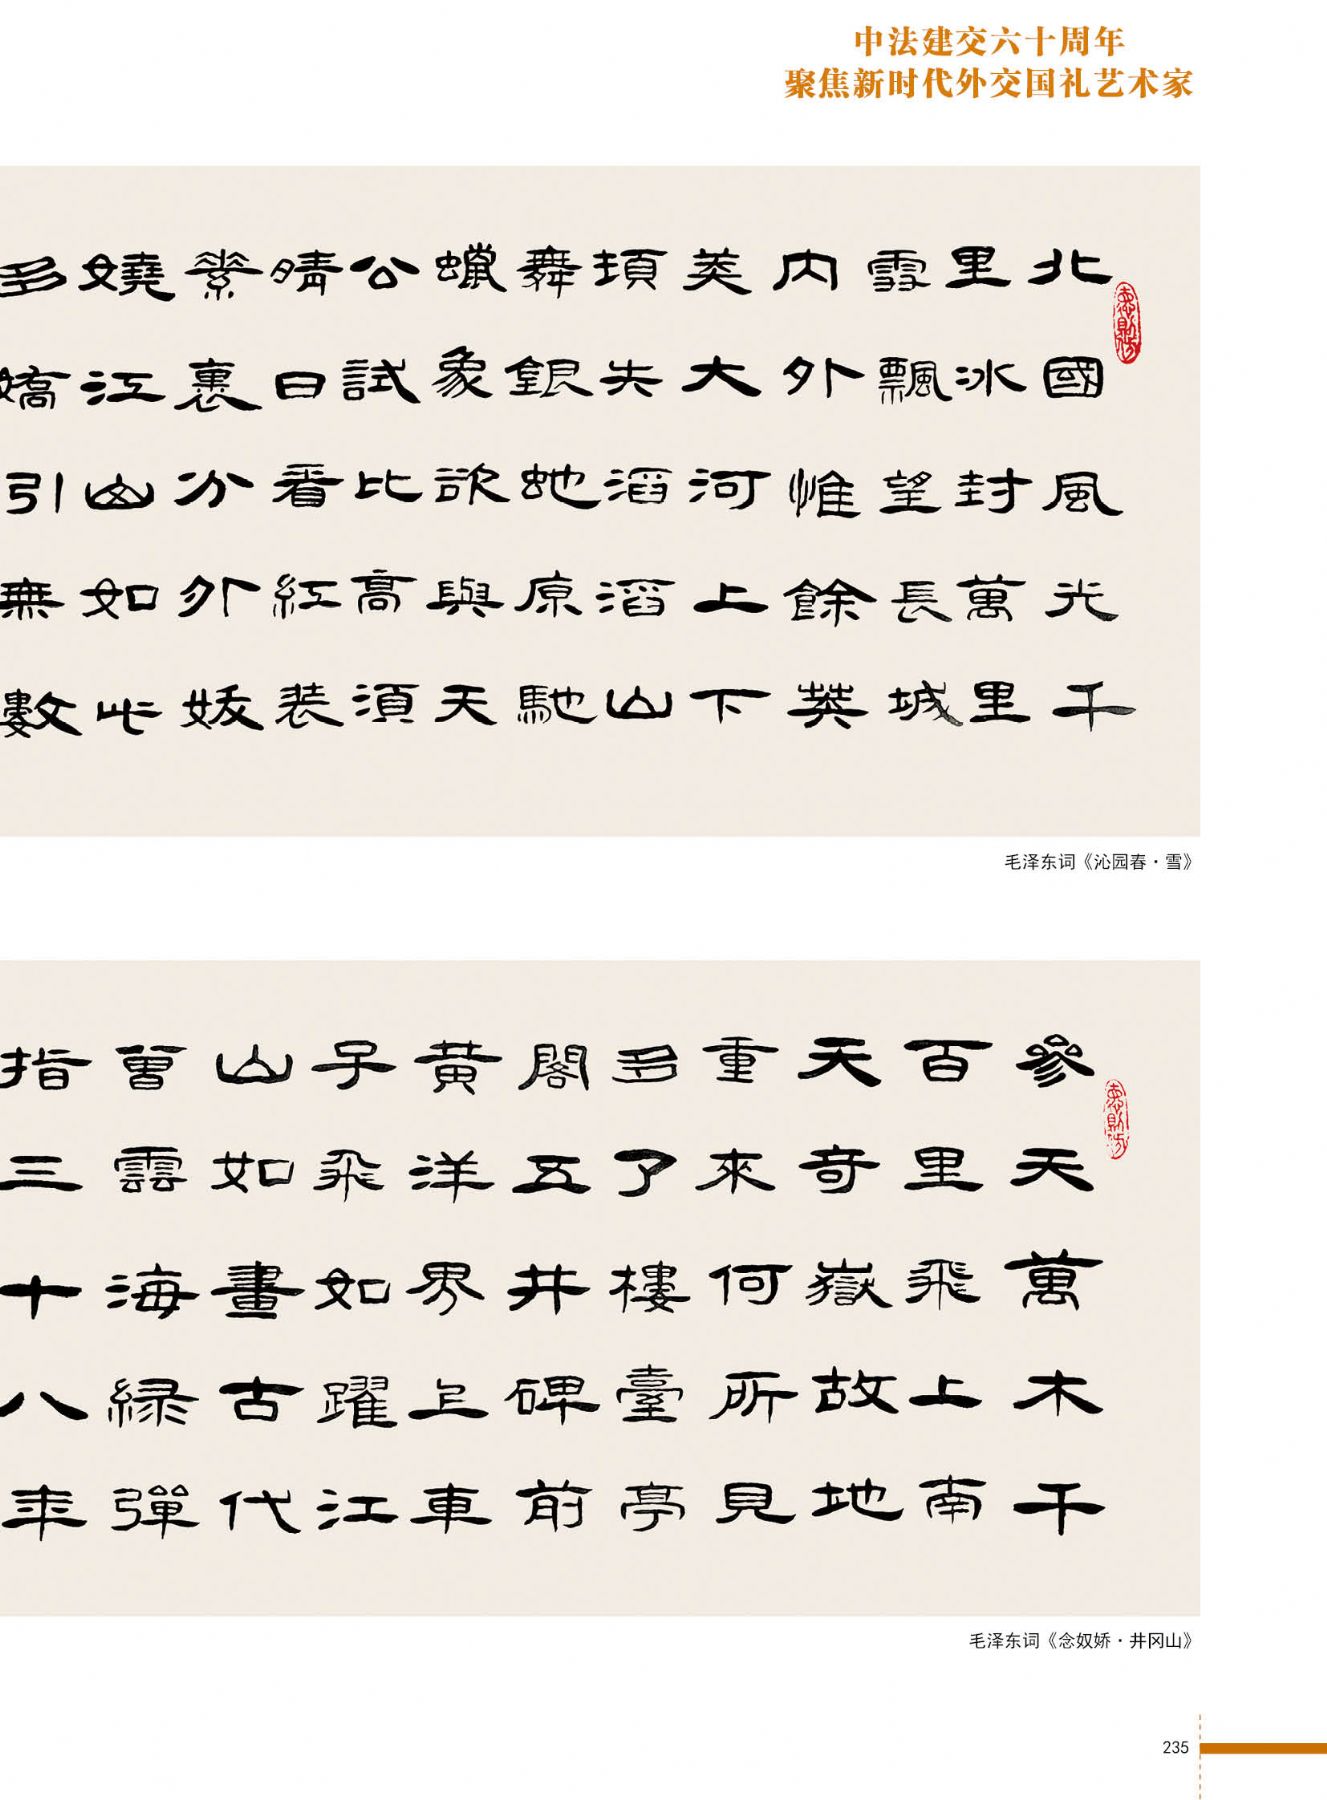 中法建交六十周年
聚焦新时代外交国礼艺术家
北國風光千
里冰封萬里
雪飄望長城
内外惟餘莽
莽大河上下
頓失滔滔山
舞銀蛇原馳
蠟象欲與天
公試比高須
晴日看紅裝
素裹分外妖
嬈江山如此
多嬌引無數
毛泽东词《沁园春·雪》
參天萬木千
百里飛上南
天奇嶽故地
重來何所見
多了樓臺亭
閣五井碑前
黄洋界上車
子飛如躍江
山如畫古代
曾雲海緑彈
指三十八年
毛泽东词《念奴娇·井冈山》
235